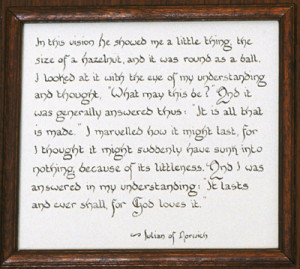 In this vision he showed me a little thing, the
size of a hazelnut, and it was round as a ball.
I looked at it with the eye of my understanding
and thought, "What may this be?" And it
was generally answered thus: "It is all that
is made." I marvelled how it might last, for
I thought it might suddenly have sunk into
nothing because of its littleness. And I was
answered in my understanding: "It lasts
and ever shall, for God loves it."
~ Julian of Norwich